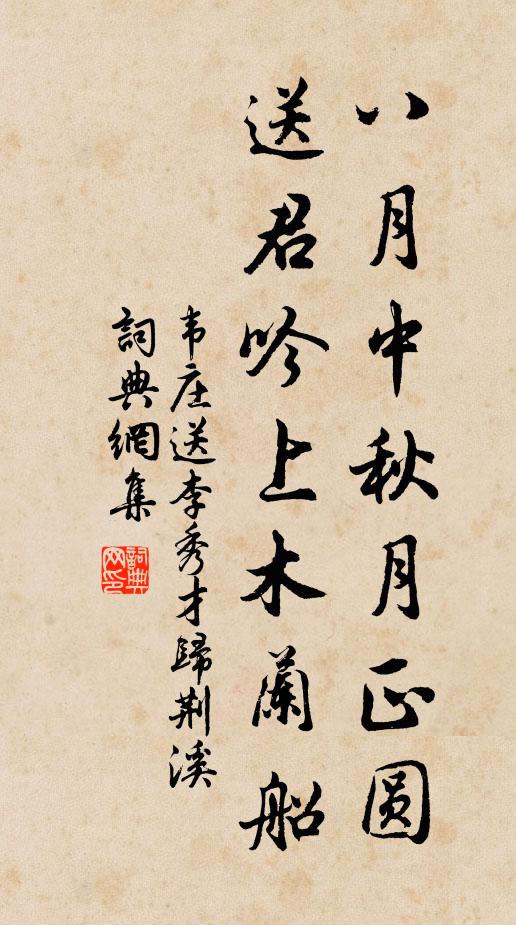 八月中秋月正圓
送君吟上木蘭船
韦庄送李秀才歸荆溪
詞典網集
詞典网印